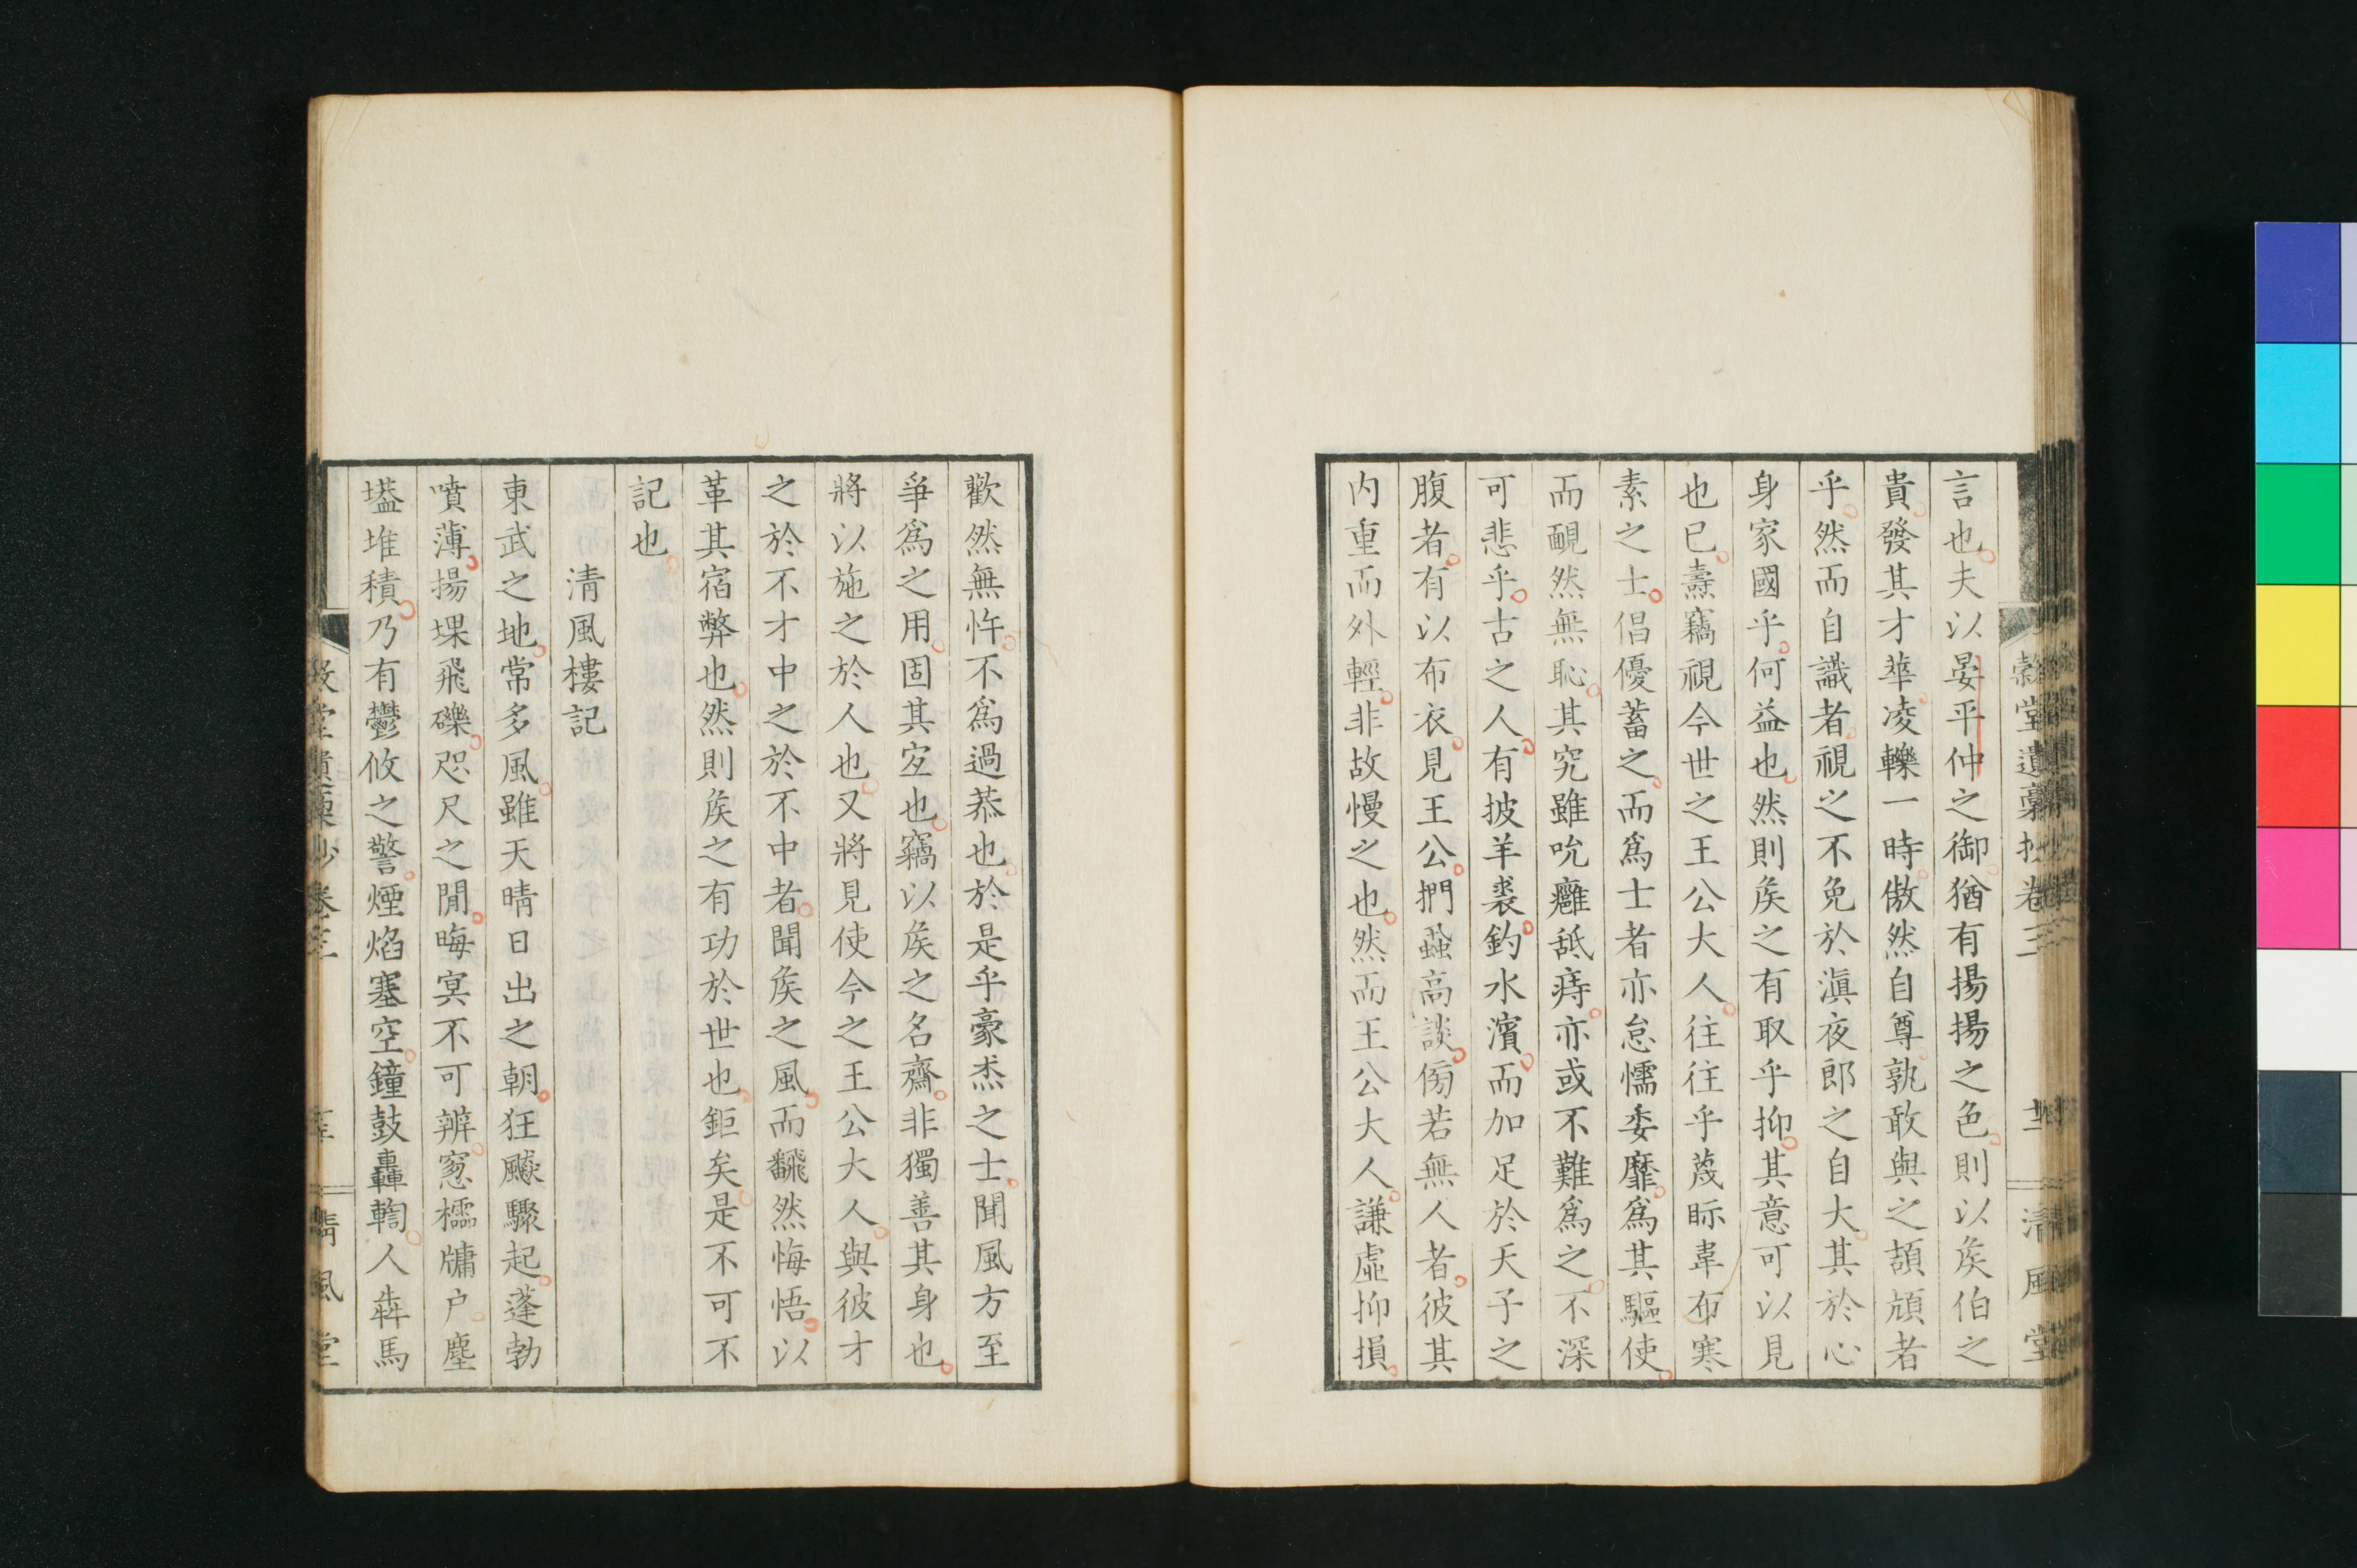 言也夫以晏平仲之御猶有揚揚之色則以矦伯之
貴發其才華凌轢一時傲然自尊孰敢與之頡頏者
乎然而自識者視之不免於滇夜郎之自大其於心
身家國乎何益也然則矦之有取乎抑其意可以見
也已壽竊視今世之王公大人往往乎蔑眎韋布寒
素之士倡優蓄之而爲士者亦怠懦委靡爲其驅使
而靦然無恥其究雖吮癰舐痔亦或不難爲之不深
可悲乎古之人有披羊裘釣水濱而加足於天子之
腹者有以布衣見王公捫蝨高談傍若無人者彼其
内重而外輕非故慢之也然而王公大人謙虛抑損
穀堂遺藁抄卷三
清風堂
歡然無忤不爲過恭也於是乎豪杰之士聞風方至
爭爲之用固其宐也竊以矦之名齋非獨善其身也
將以施之於人也又將見使今之王公大人與彼才
之於不才中之於不中者聞矦之風而飜然悔悟以
革其宿弊也然則矦之有功於世也鉅矣是不可不
記也
清風樓記
東武之地常多風雖天晴日出之朝狂飈驟起蓬勃
噴薄揚堁飛礫咫尺之閒晦冥不可辨窻櫺牗户塵
壒堆積乃有鬱攸之警煙焰塞空鐘鼓轟輷人犇馬
卷三
清風堂